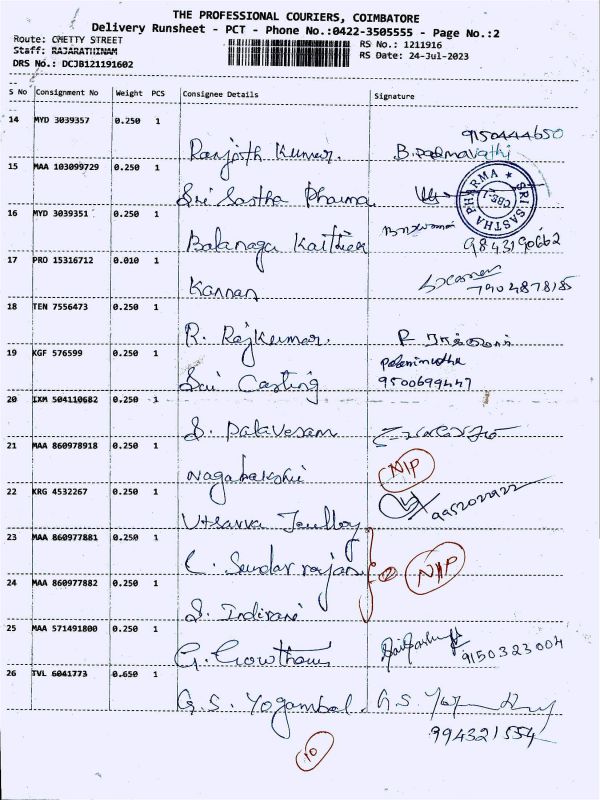 THE PROFESSIONAL COURIERS, COIMBATORE
Delivery Runsheet - PCT - Phone No.:0422-3505555 - Page No.:2
Route: CHETTY STREET
RS No.: 1211916
Staff: RAJARATHINAM
RS Date: 24-Jul-2023
DRS No.: DCJB121191602
S No Consignment No Weight PCS Consignee Details Signature
14 MYD 3039357 0.250 1
9150444650
Ranjith Kumar. B. Padmavathi
15 MAA 103099729 0.250 1
Sri Sastha Pharma
SRI SASTHA PHARMA ★ CBE-1
16 MYD 3039351 0.250 1
Balanaga Karthick 9843190662
17 PRO 15316712 0.010 1
Kannan 7904878185
18 TEN 7556473 0.250 1
R. Rajkumar. R
19 KGF 576599 0.250 1
Palanimuthu
Sai Casting 9500699447
20 IXM 504110682 0.250 1
S. Palavesam
21 MAA 860978918 0.250 1
Nagalakshi NIP
22 KRG 4532267 0.250 1
9952022922
23 MAA 860977881 0.250 1
C. Sundar rajan NIP
24 MAA 860977882 0.250 1
S. Indirani
25 MAA 571491800 0.250 1
G. Gowtham 9150323004
26 TVL 6041773 0.650 1
G.S. Yogambal. G.S.
994321554
10